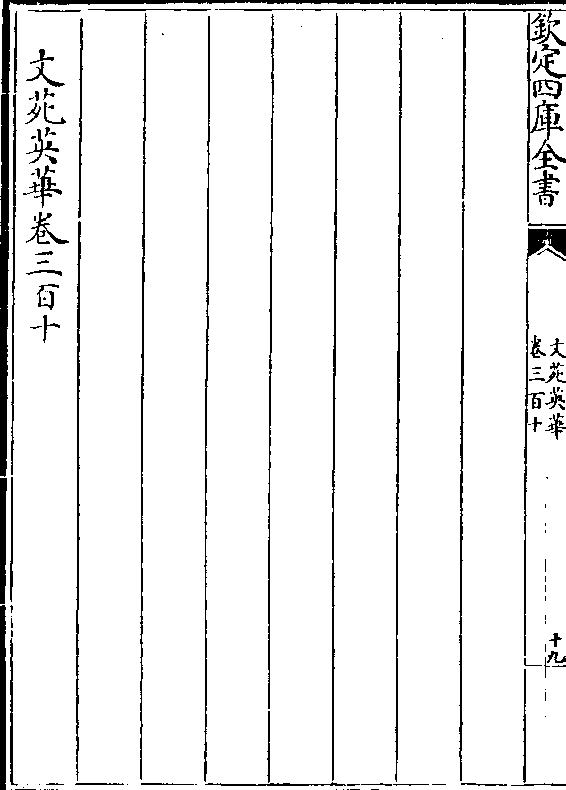 欽定四庫全書
文苑英華
卷三百十
十九
文苑英華卷三百十